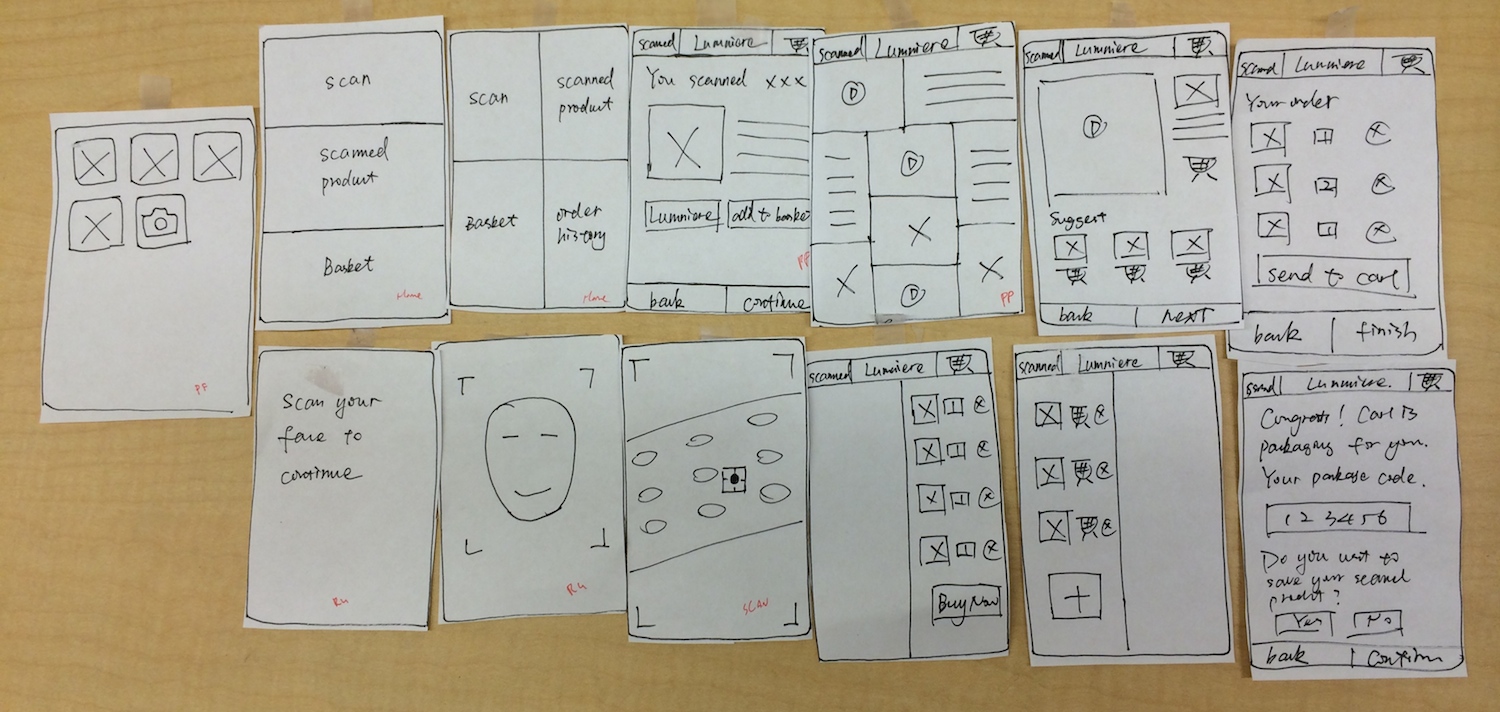 PF
scan
scanned
product
Basket
Home
scan
scanned
product
Basket
order
history
Home
scanned
Lumniere
You scanned XXX
Lumniere
add to basket
PF
back
continue
scanned
Lumniere
D
D
D
PP
scanned
Lumniere
D
Suggest
back
NEXT
scanned
Lumniere
Your order
1
2
1
send to carl
back
finish
Scan your
face to
continue
RU
RU
SCAN
scanned
Lumniere
1
1
1
1
Buy Now
scanned
Lumniere
+
scanned
Lumniere
Congrats! Carl is
packaging for you.
Your package code.
123456
Do you want to
save your scanned
product?
Yes
No
back
Confirm